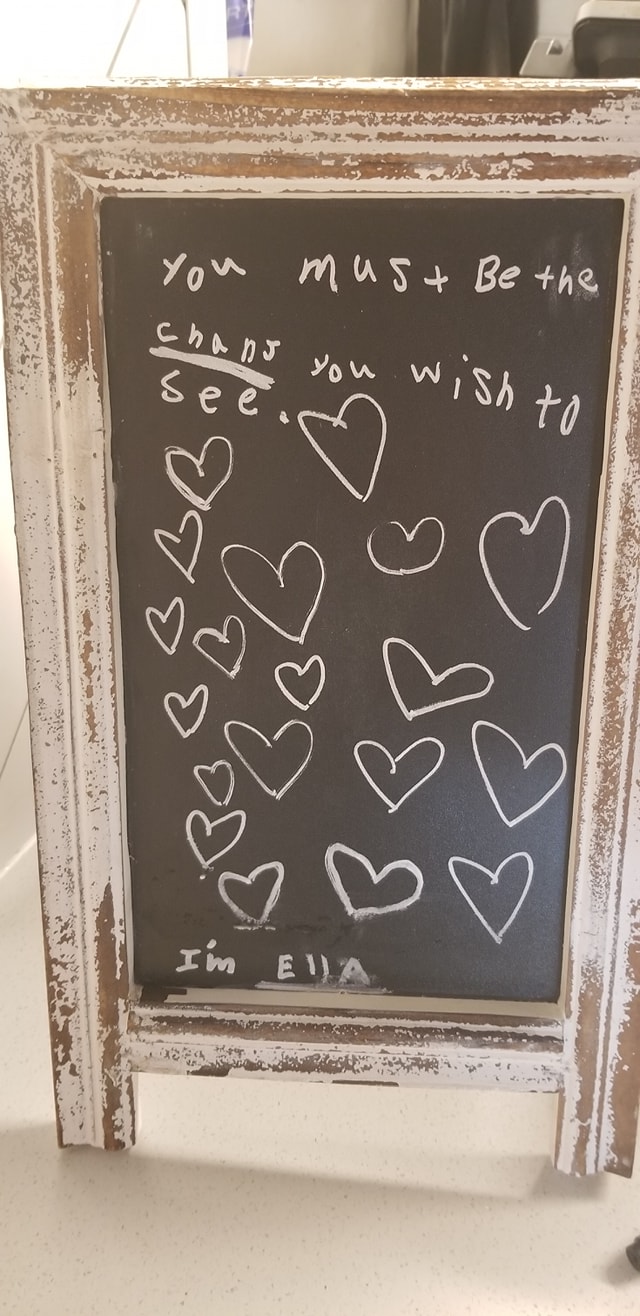 you must Be the
chans you wish to
see.
I'm EllA